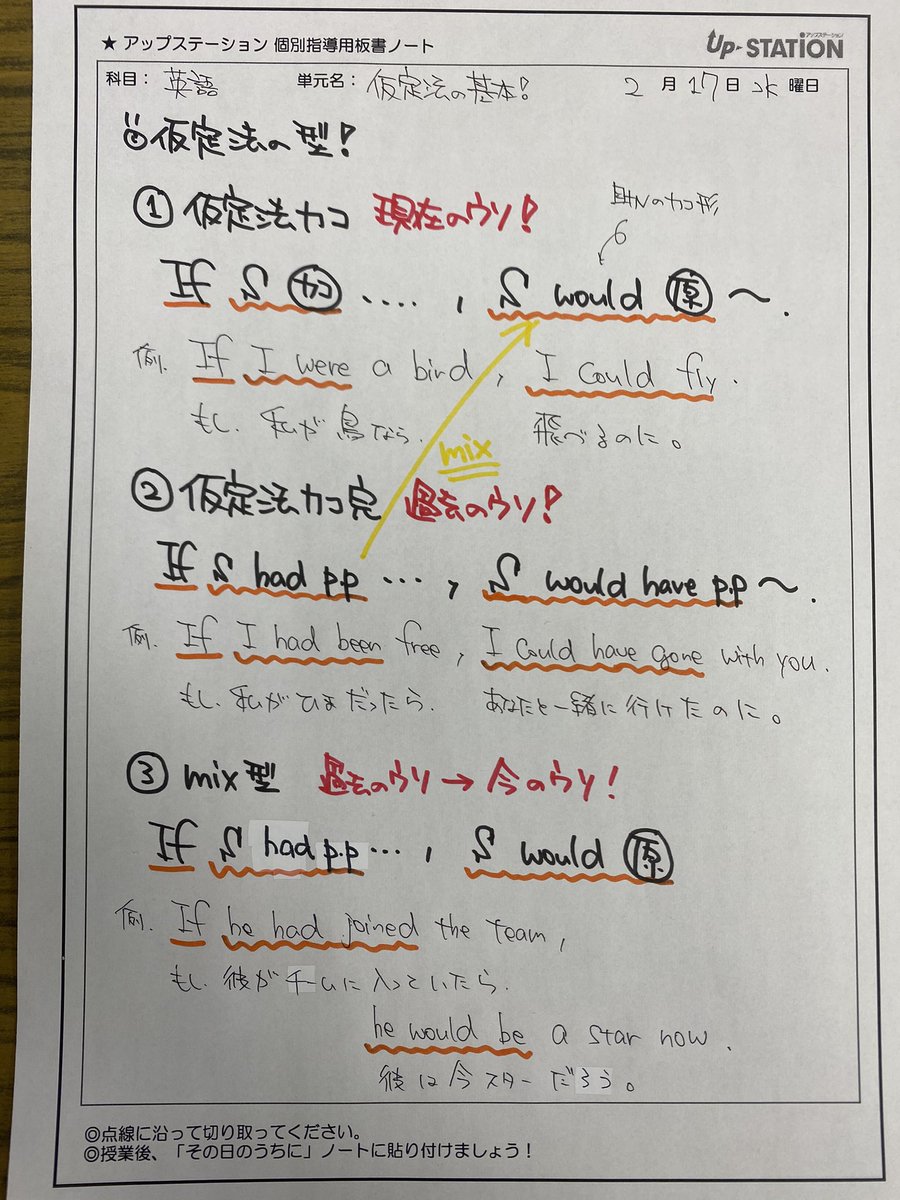 ★ アップステーション 個別指導用板書ノート
アップステーション
Up-STATION
科目: 英語 単元名: 仮定法の基本! 2月17日水曜日
仮定法の型!
① 仮定法カコ 現在のウソ! 助Vのカコ形
If S カコ ‥‥, S would 原 〜.
例. If I were a bird, I could fly.
もし、私が鳥なら. 飛べるのに。
mix
② 仮定法カコ完 過去のウソ!
If S had p.p …, S would have p.p 〜.
例. If I had been free, I could have gone with you.
もし、私がひまだったら. あなたと一緒に行けたのに。
③ mix型 過去のウソ → 今のウソ!
If S had p.p …, S would 原
例. If he had joined the team,
もし、彼がチームに入っていたら.
he would be a star now.
彼は今スターだろう。
◎点線に沿って切り取ってください。
◎授業後、「その日のうちに」ノートに貼り付けましょう!